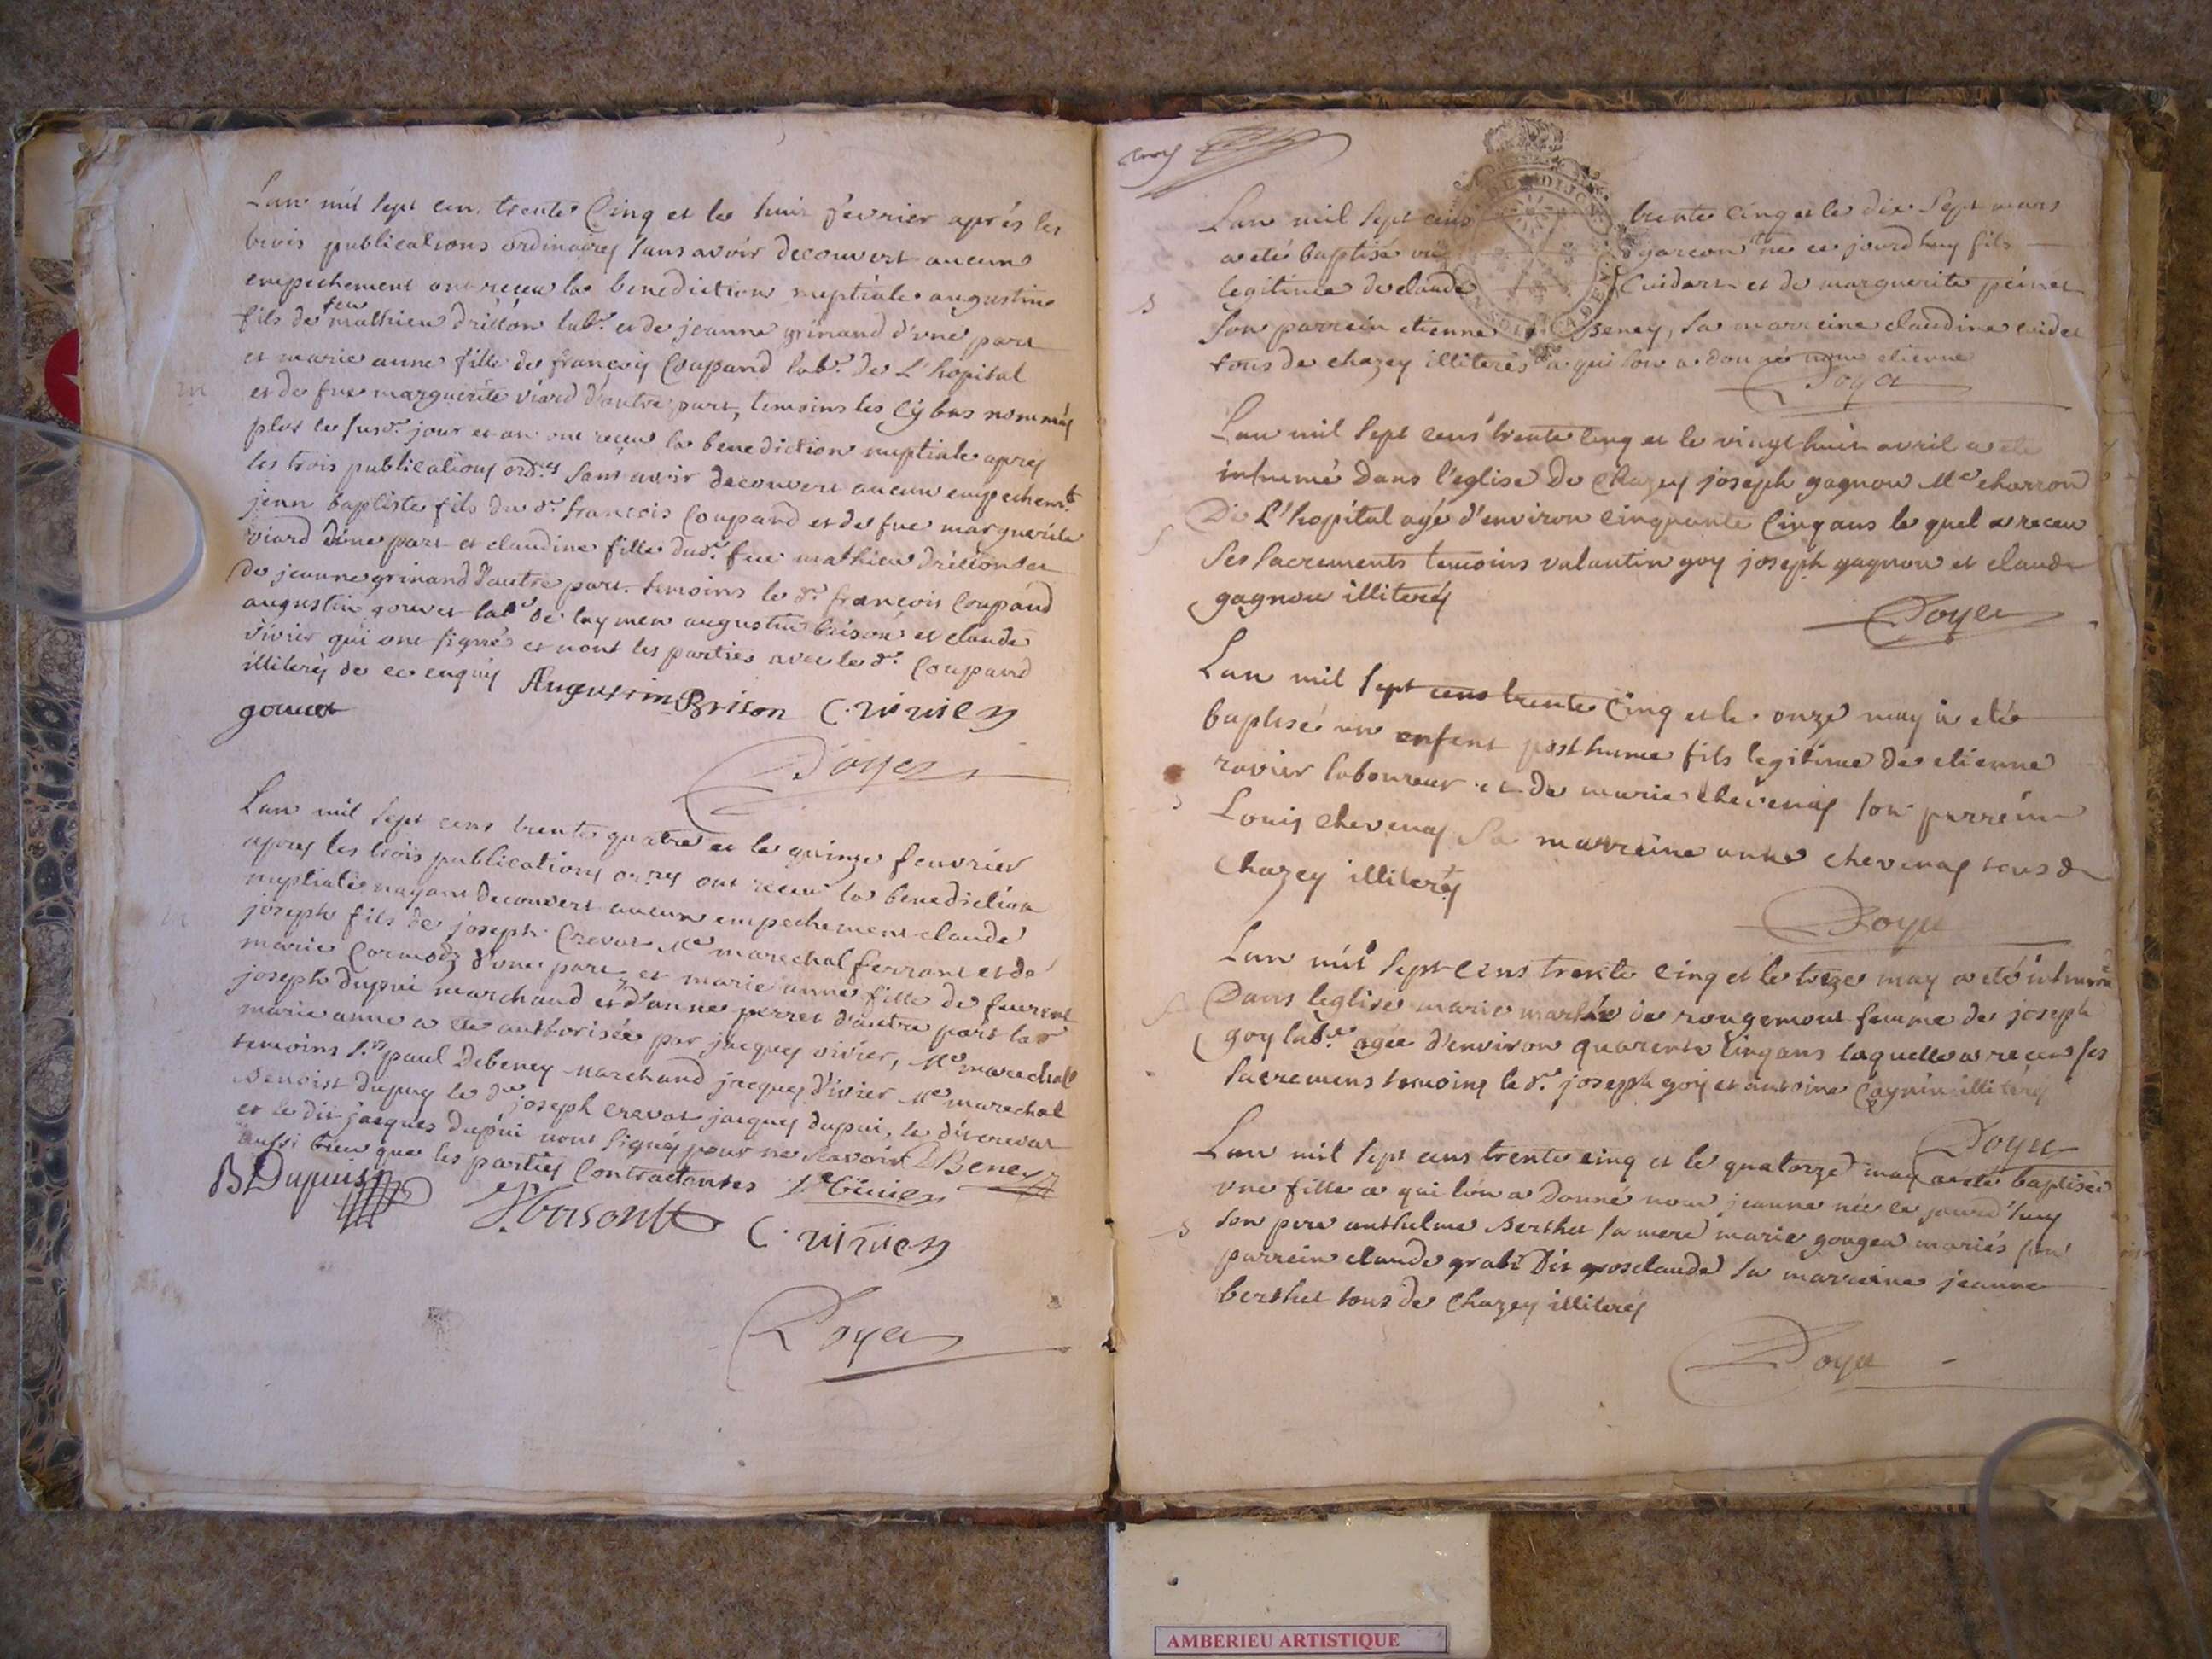 Lan mil sept cen. trente Cinq et le huit fevrier aprés les
trois publications ordinaires sans avoir decouvert aucun
empechement ont receu la benediction nuptiale augustin
feu
fils de mathieu drillon lab.r et de jeanne grinand d'vne part
et marie anne fille de françois Coupand lab.r de L'hopital
et de fue marguerite viard d'autre part, temoins les cy bas nommés
plus le susd.t jour et an ont receu la benediction nuptiale apres
les trois publications ord.es sans avoir decouvert aucun empechem.t
jean baptiste fils du d.t francois Coupand et de fue marguerite
viard dune part et claudine fille dud.t feu mathieu drillon et
de jeanne grinand d'autre part. temoins le d.t francois Coupand
augustin gouvet lab.r de augustin brison et claude
vivier qui ont signé et nont les parties avec le d.t Coupand
illiterés de ce enquis Augustin Brison C. vivier
gouvet
Doyer
Lan mil sept cens trente quatre et le quinze feuvrier
apres les trois publications or.res ont receu la benediction
nuptiale nayant decouvert aucun empechement claude
joseph fils de joseph Crevat Me marechal ferrant et de
marie Cormoz d'vne part et marie anne fille de
joseph dupui marchand et d'anne perret d'autre part la d.
marie anne a ete authorisée par jacques vivier, Me marechal
temoins s.r paul Debeney marchand jacques vivier Me marechal
Benoist dupuy le d.t joseph crevat jacques dupui, le dit crevat
et le dit jacques dupui nont signés pour ne savoir DBeney
aussi bien que les parties Contractantes
B Dupuis
C. vivier
Doyer
Lan mil sept cens trente cinq et le dix sept mars
a eté baptisé un garcon né ce jourd'huy fils
legitime de claude Cuidart et de marguerite peinet
son parrein etienne Beney, sa marreine claudine cuidet
tous de chazey illiterés a qui lon a donné nom etienne
Doyer
Lan mil sept cens trente cinq et le vingt huit avril a ete
inhumé dans l'eglise de Chazey joseph gagnon Me charron
De L'hopital agé d'environ cinquante Cinq ans le quel a receu
ses sacrements temoins valantin goy joseph gagnon et claude
gagnon illiterés
Doyer
Lan mil sept cens trente Cinq et le onze may a eté
baptisé un enfent posthume fils legitime de etienne
ravier laboureur et de marie chevenay son parrein
Louis chevenay sa marreine anne chevenay tous de
Chazey illiterés
Doyer
Lan mil sept cens trente cinq et le treze may a eté inhumée
Dans leglise marie marthe de rougemont femme de joseph
goy lab.r agée d'environ quarente cinq ans laquelle a receu ses
sacremens temoins le d.t joseph goy et antoine illiterés
Doyer
Lan mil sept cens trente cinq et le quatorze may a eté baptisée
vne fille a qui lon a donné nom jeanne née ce jourd'huy
son pere anthelme Berthet sa mere marie gougea mariés son
parrein claude grabi Dit grosclaude sa marreine jeanne
berthet tous de Chazey illiterés
Doyer
AMBERIEU ARTISTIQUE